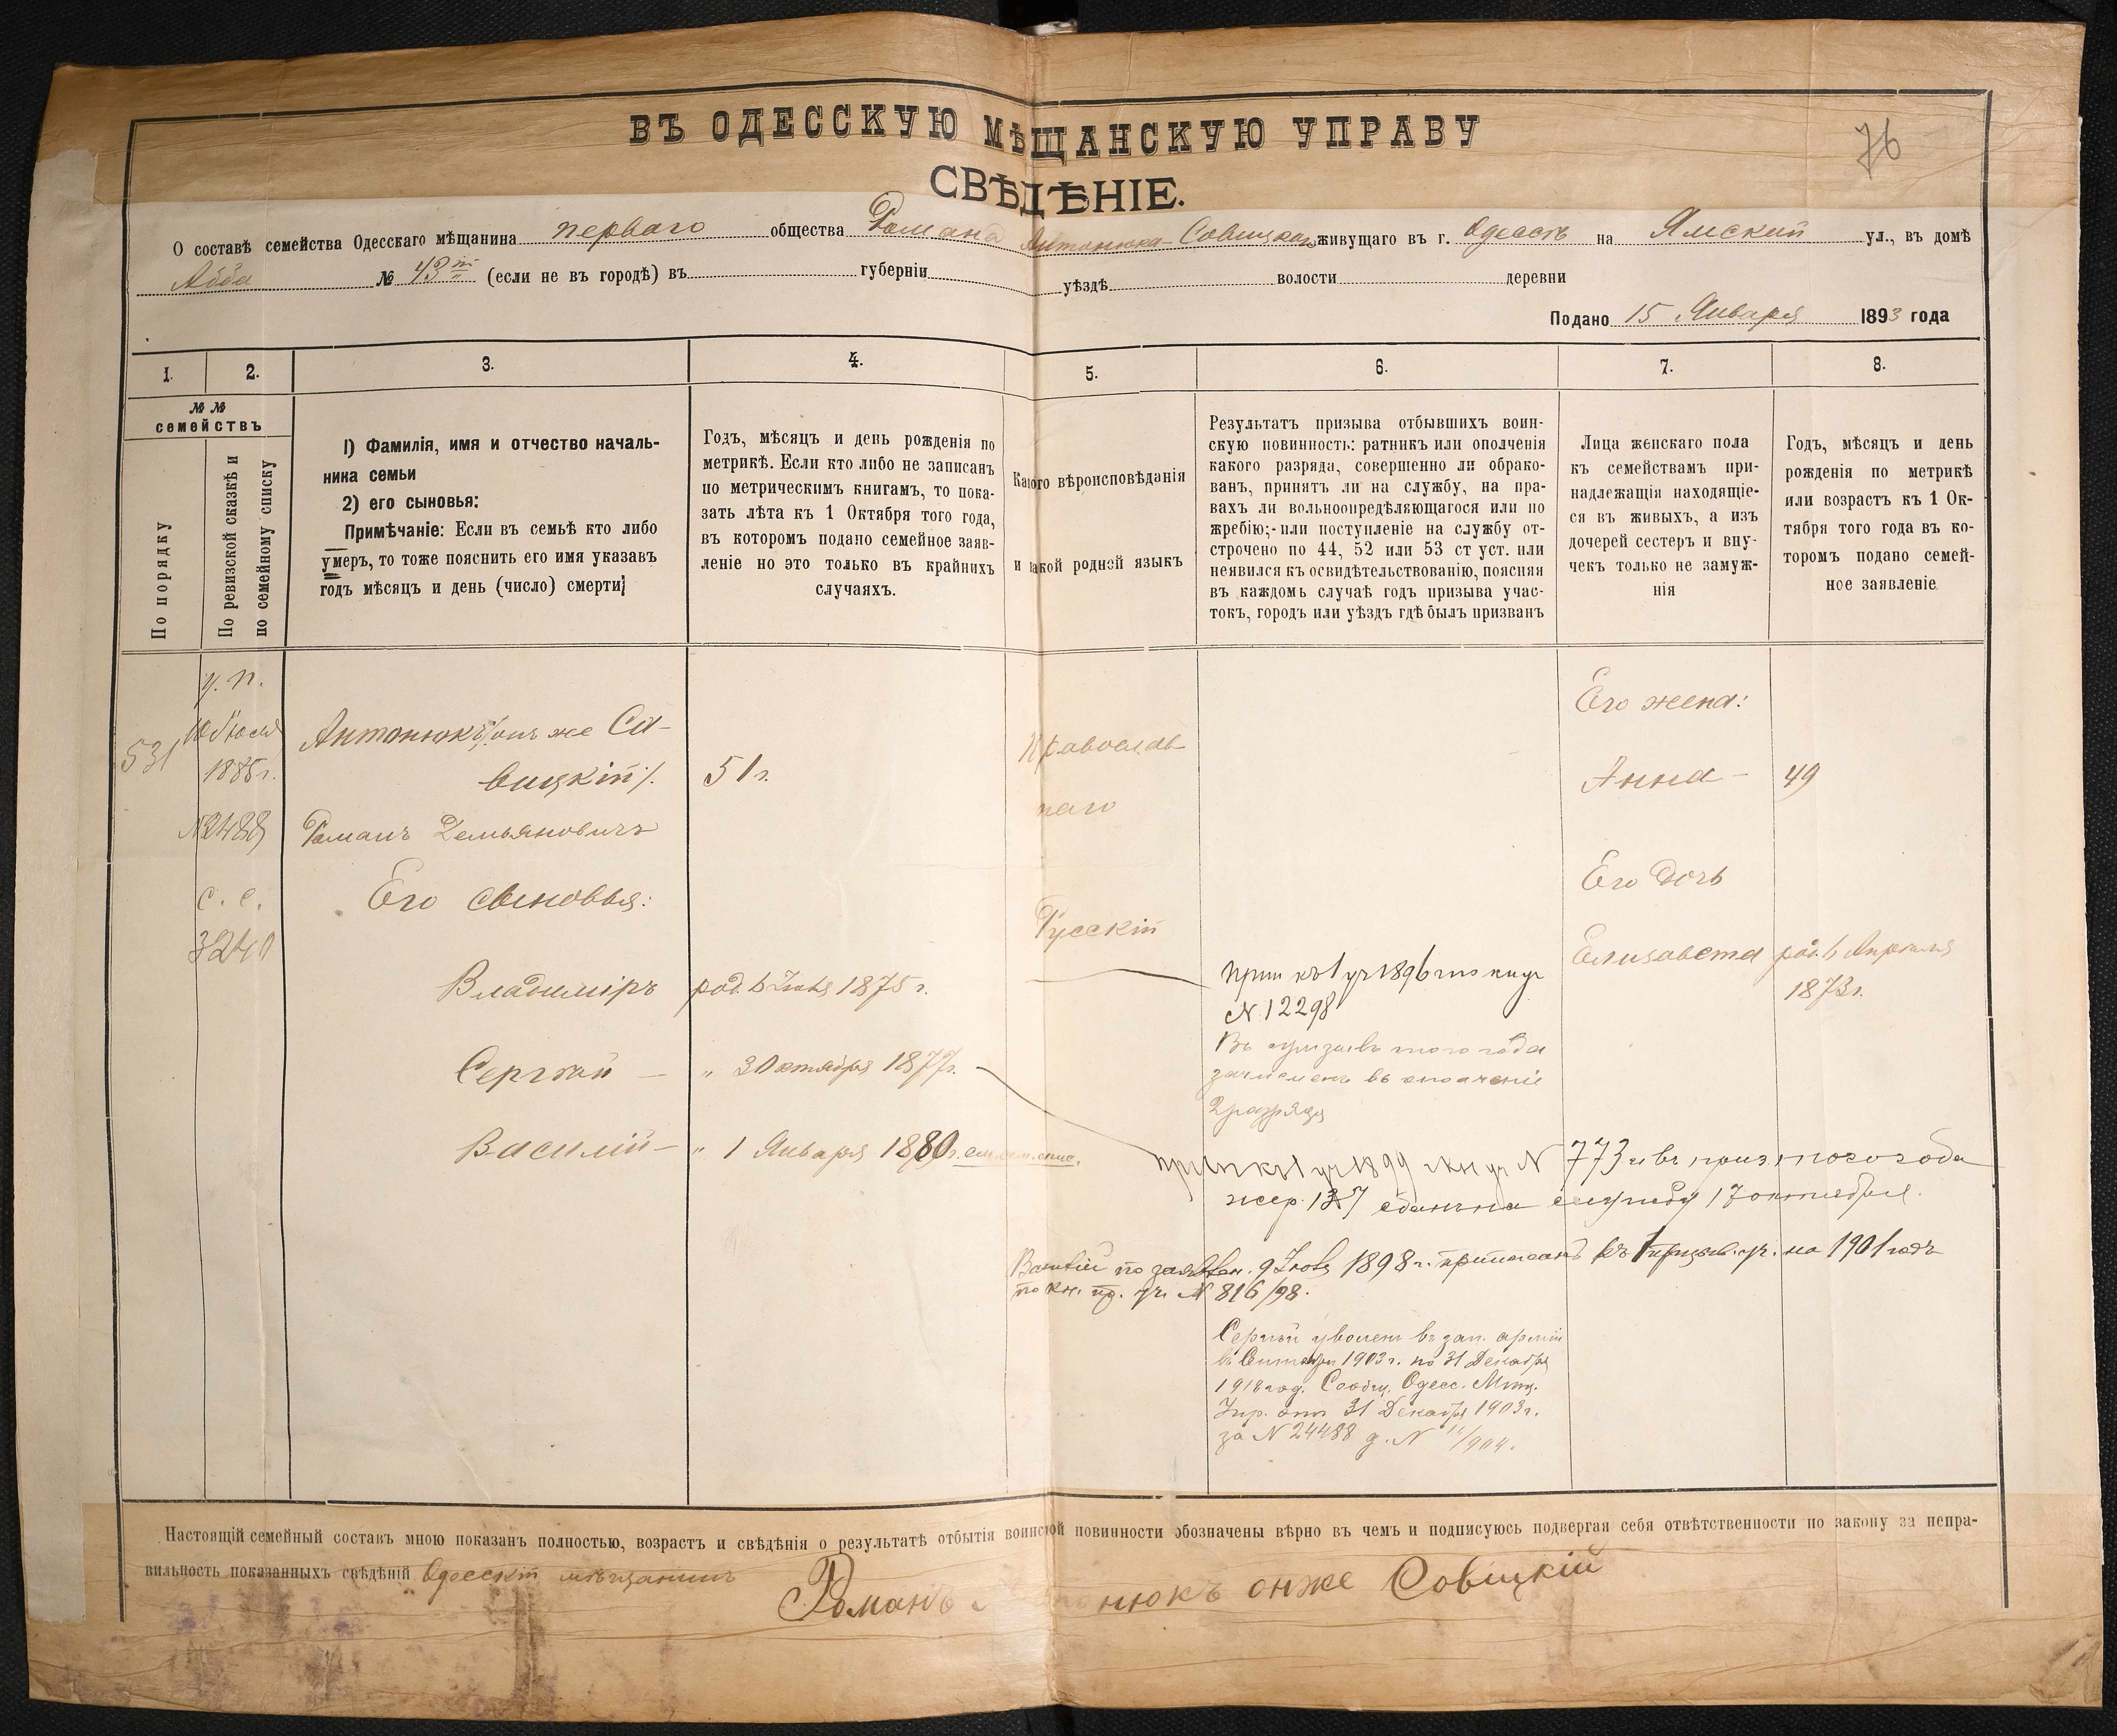 76
ВЪ ОДЕССКУЮ МѢЩАНСКУЮ УПРАВУ
СВѢДѢНІЕ.
О составѣ семейства Одесскаго мѣщанина перваго общества Романа Антонюка-Совицкаго живущаго въ г. Одессѣ на Ямской ул., въ домѣ
Абба № 43 (если не въ городѣ) въ губерніи уѣздѣ волости деревни
Подано 15 Января 1893 года
1. 2. 3. 4. 5. 6. 7. 8.
№ № семействъ
По порядку
По ревизской сказкѣ и по семейному списку
1) Фамилія, имя и отчество началь-
ника семьи
2) его сыновья:
Примѣчаніе: Если въ семьѣ кто либо
умеръ, то тоже пояснить его имя указавъ
годъ мѣсяцъ и день (число) смерти;
Годъ, мѣсяцъ и день рожденія по
метрикѣ. Если кто либо не записанъ
по метрическимъ книгамъ, то пока-
зать лѣта къ 1 Октября того года,
въ которомъ подано семейное заяв-
леніе но это только въ крайнихъ
случаяхъ.
Какого вѣроисповѣданія
и какой родной языкъ
Результатъ призыва отбывшихъ воин-
скую повинность: ратникъ или ополченія
какого разряда, совершенно ли обрако-
ванъ, принятъ ли на службу, на пра-
вахъ ли вольноопредѣляющагося или по
жребію;-или поступленіе на службу от-
строчено по 44, 52 или 53 ст уст. или
неявился къ освидѣтельствованію, поясняя
въ каждомъ случаѣ годъ призыва учас-
токъ, городъ или уѣздъ гдѣ былъ призванъ
Лица женскаго пола
къ семействамъ при-
надлежащія находящіе-
ся въ живыхъ, а изъ
дочерей сестеръ и вну-
чекъ только не замуж-
нія
Годъ, мѣсяцъ и день
рожденія по метрикѣ
или возрастъ къ 1 Ок-
тября того года въ ко-
торомъ подано семей-
ное заявленіе.
531
у. п.
10 Іюля
1885 г.
№2488
с. с.
3240
Антонюкъ /онъ же Са-
вицкій/.
Романъ Демьяновичъ
51 г.
Православ
наго
Русскій
Его жена:
Анна - 49
Его дочь
Елизавета род. 6 Апрѣля
1873 г.
Его сыновья:
Владиміръ род. 6 Іюня 1875 г.
прип къ 1 уч 1896 по кн уч
№ 12298
Въ призывъ того года
зачисленъ въ ополченіе
2 разряда
Сергѣй — „ 3 Октября 1877 г.
прип къ 1 уч 1899 кн уч № 773 и въ приз. того года
жер. 137 сданъ на службу 17 октября.
Василій — „ 1 Января 1880 г.
Василій по заявлен. 9 Іюня 1898 г. приписанъ къ 1 призыв. уч. на 1901 годъ
по кн. пр. уч. № 816/98.
Сергѣй уволенъ въ зап. арміи
въ 1903 г. по 31 Декабря
1918 год. Сообщ. Одесс. Мѣщ.
Упр. отъ 31 Декабря 1903 г.
за № 24488 д. №
Настоящій семейный составъ мною показанъ полностью, возрастъ и свѣдѣнія о результатѣ отбытія воинской повинности обозначены вѣрно въ чемъ и подписуюсь подвергая себя отвѣтственности по закону за непра-
вильность показанныхъ свѣдѣній Одесскій мѣщанинъ
Романъ Антонюкъ онже Совицкій